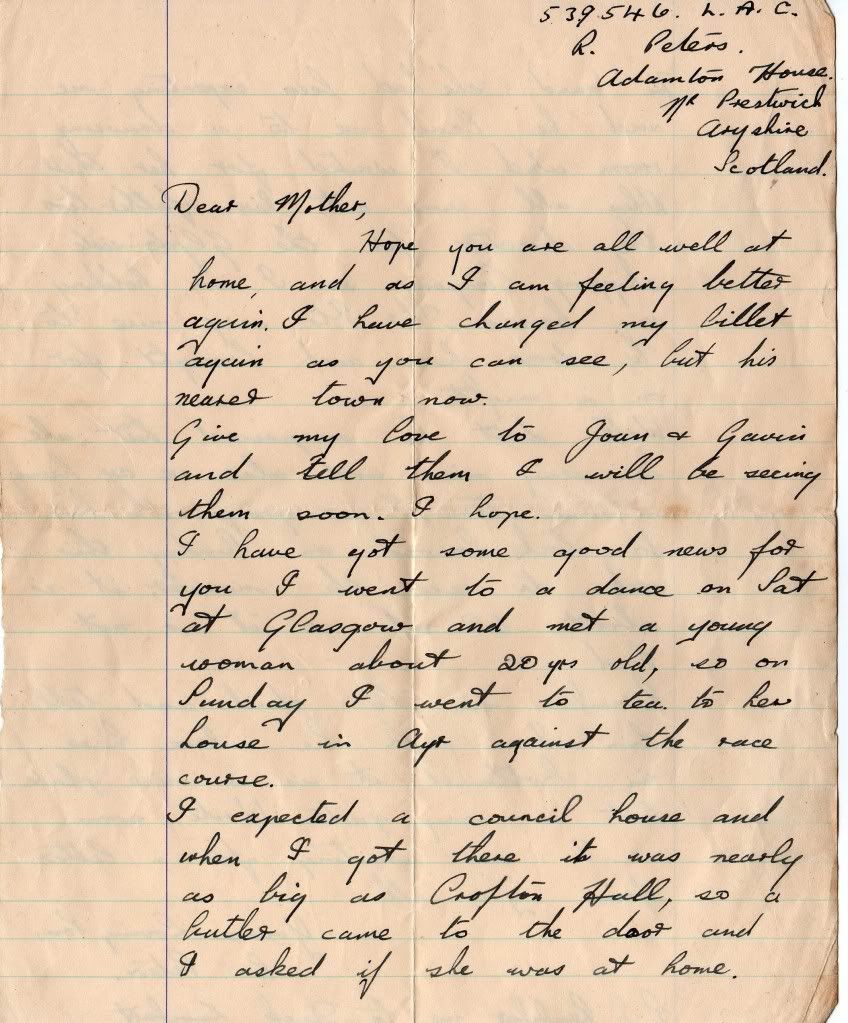 539546. L.A.C.
R. Peters.
Adamton House.
Nr Prestwich
Aryshire
Scotland.
Dear Mother,
Hope you are all well at
home, and as I am feeling better
again. I have changed my billet
again as you can see, but his
nearer town now.
Give my love to Joan & Gavin
and tell them I will be seeing
them soon. I hope.
I have got some good news for
you I went to a dance on Sat
at Glasgow and met a young
woman about 20 yrs old, so on
Sunday I went to tea. to her
house in Ayr against the race
course.
I expected a council house and
when I got there it was nearly
as big as Crofton Hall, so a
butler came to the door and
I asked if she was at home.